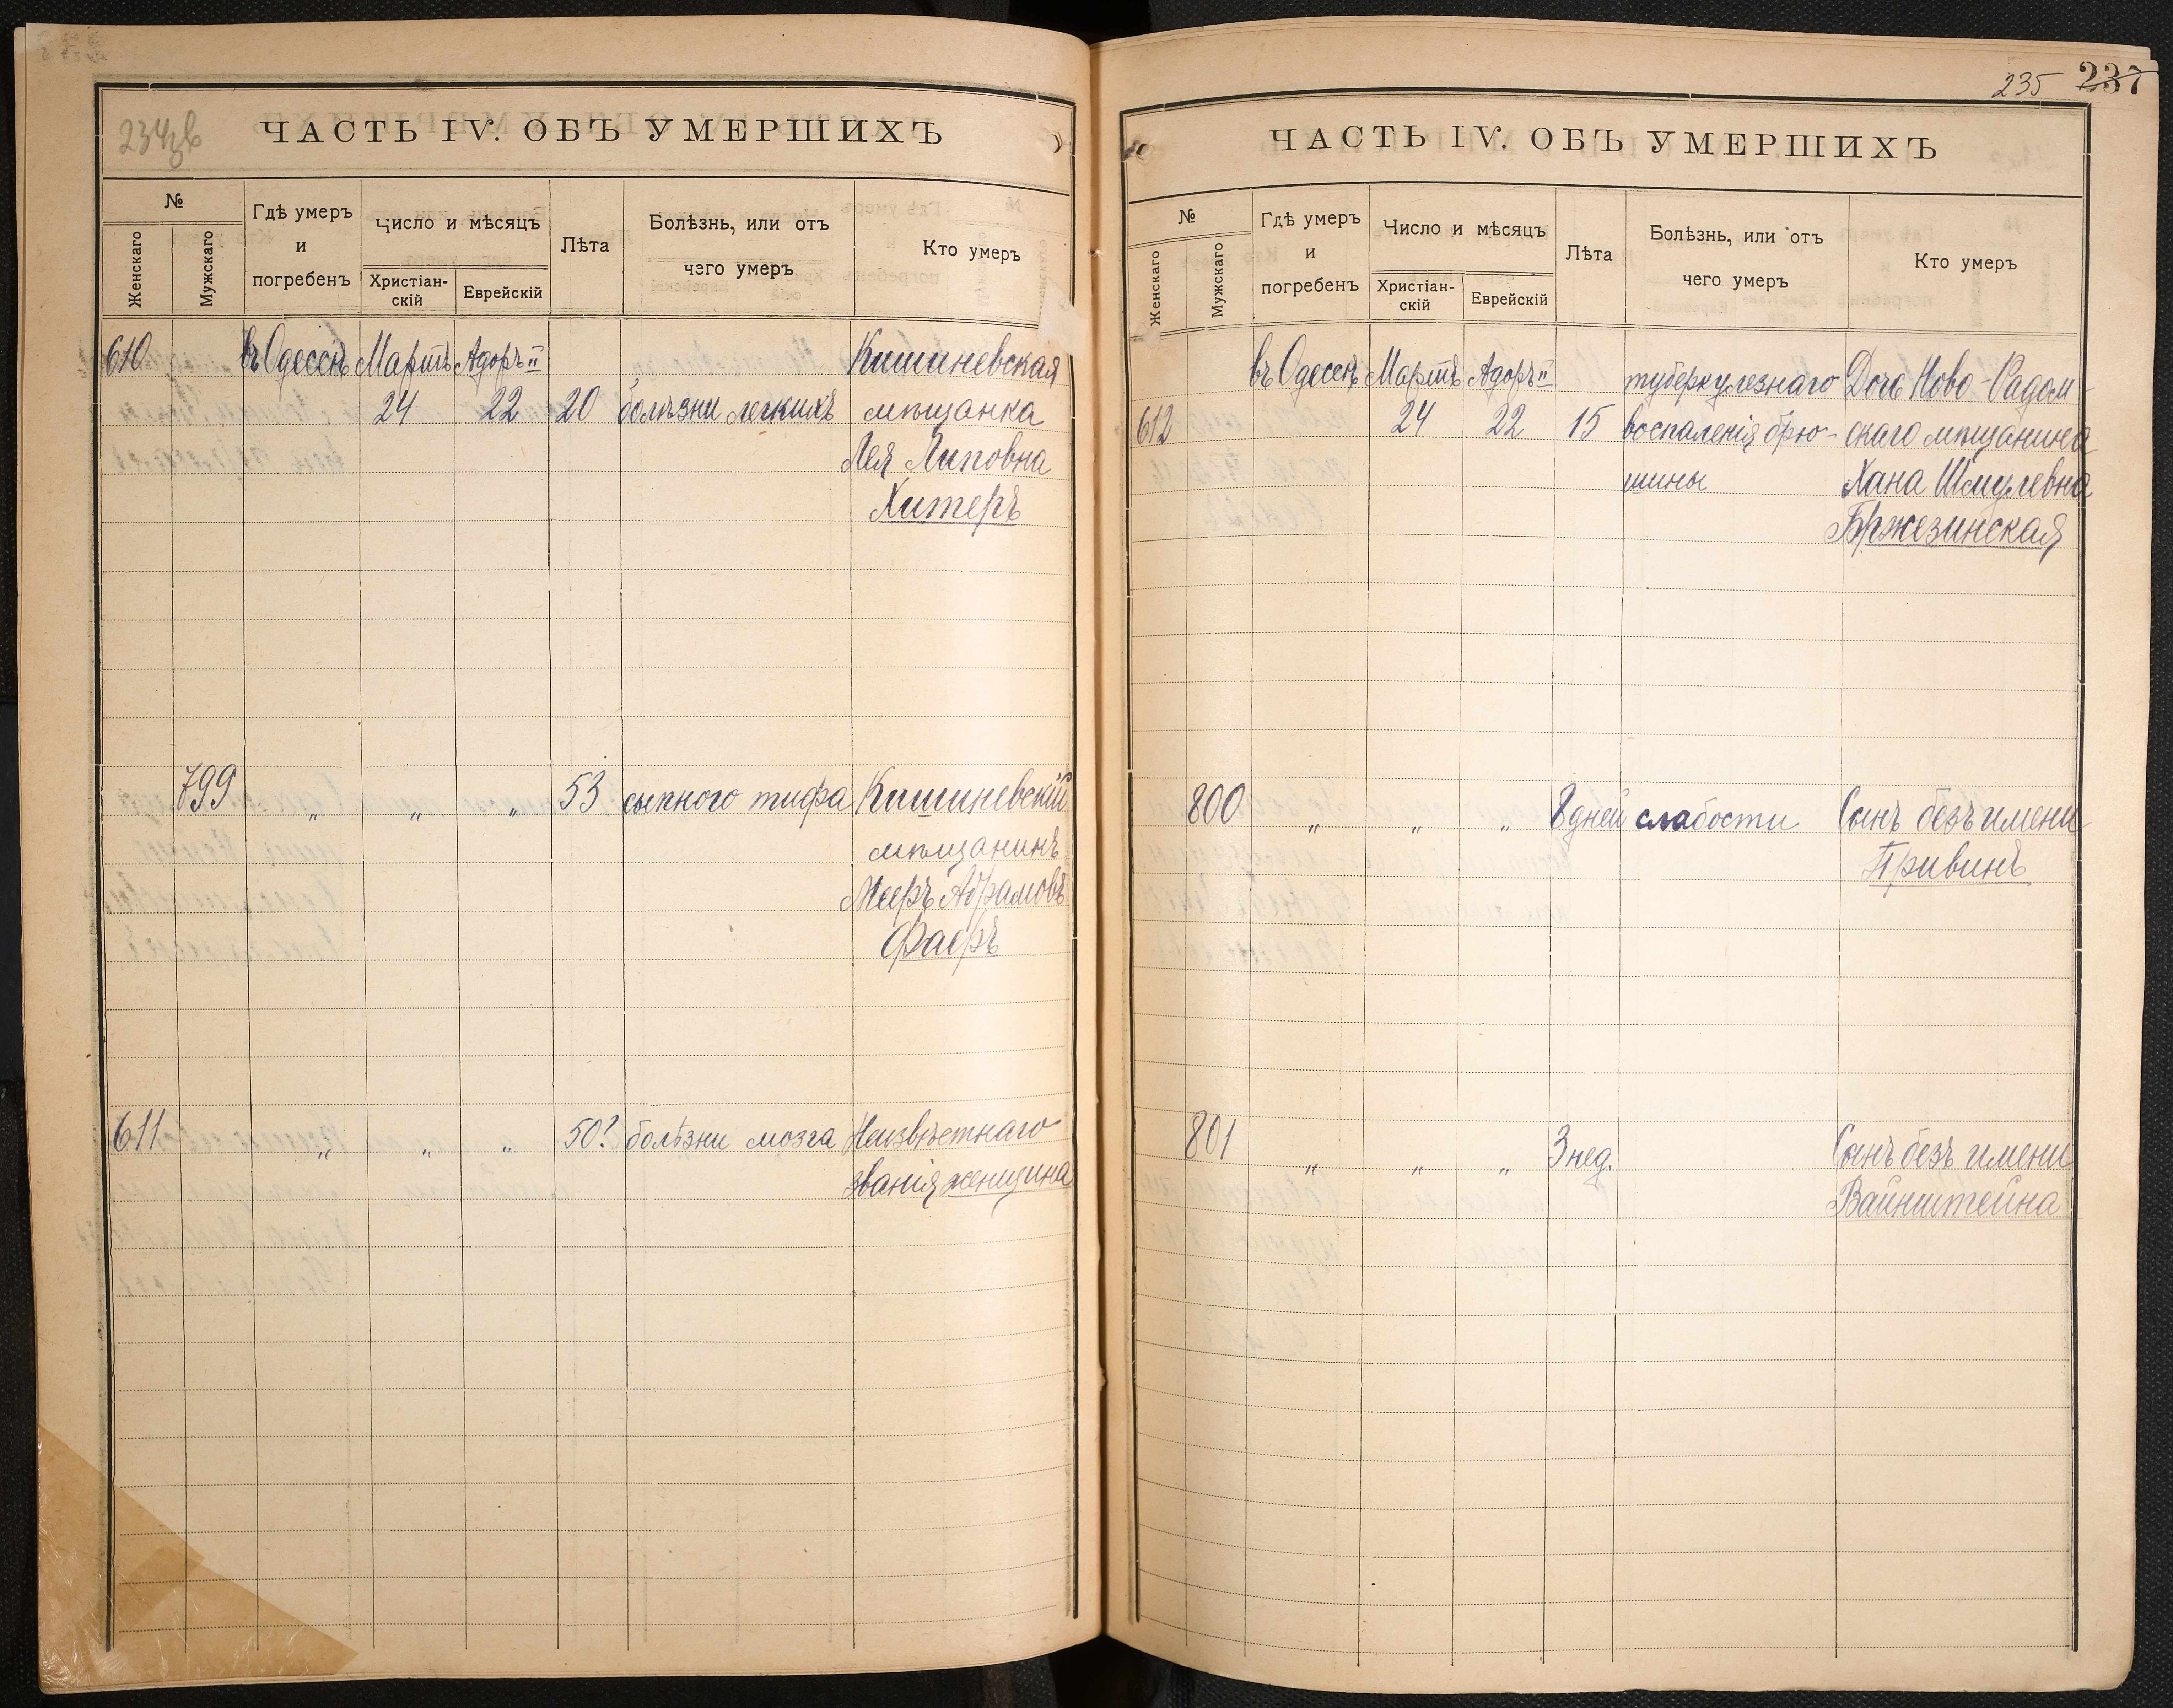 234зв
ЧАСТЬ IV. ОБЪ УМЕРШИХЪ
№
Женскаго
Мужскаго
Гдѣ умеръ
и
погребенъ
Число и мѣсяцъ
Христіан-
скій
Еврейскій
Лѣта
Болѣзнь, или отъ
чего умеръ
Кто умеръ
610 въ Одессѣ Мартъ Адоръ II Кишиневская
24 22 20 болѣзни легкихъ мѣщанка
Лея Липовна
Хитеръ
799 " " " 53 сыпного тифа Кишиневскій
мѣщанинъ
Мееръ Абрамовъ
Фаеръ
611 " " " 50? болѣзни мозга Неизвѣстнаго
званія женщина
235 237
ЧАСТЬ IV. ОБЪ УМЕРШИХЪ
№
Женскаго
Мужскаго
Гдѣ умеръ
и
погребенъ
Число и мѣсяцъ
Христіан-
скій
Еврейскій
Лѣта
Болѣзнь, или отъ
чего умеръ
Кто умеръ
въ Одессѣ Мартъ Адоръ II туберкулезнаго Дочь Ново-Радом-
612 24 22 15 воспаленія брю- скаго мѣщанина
шины Хана Шмулевна
Бржезинская
800 " " " 8 дней слабости Сынъ безъ имени
Привинъ
801 " " " 3 нед. Сынъ безъ имени
Вайнштейна